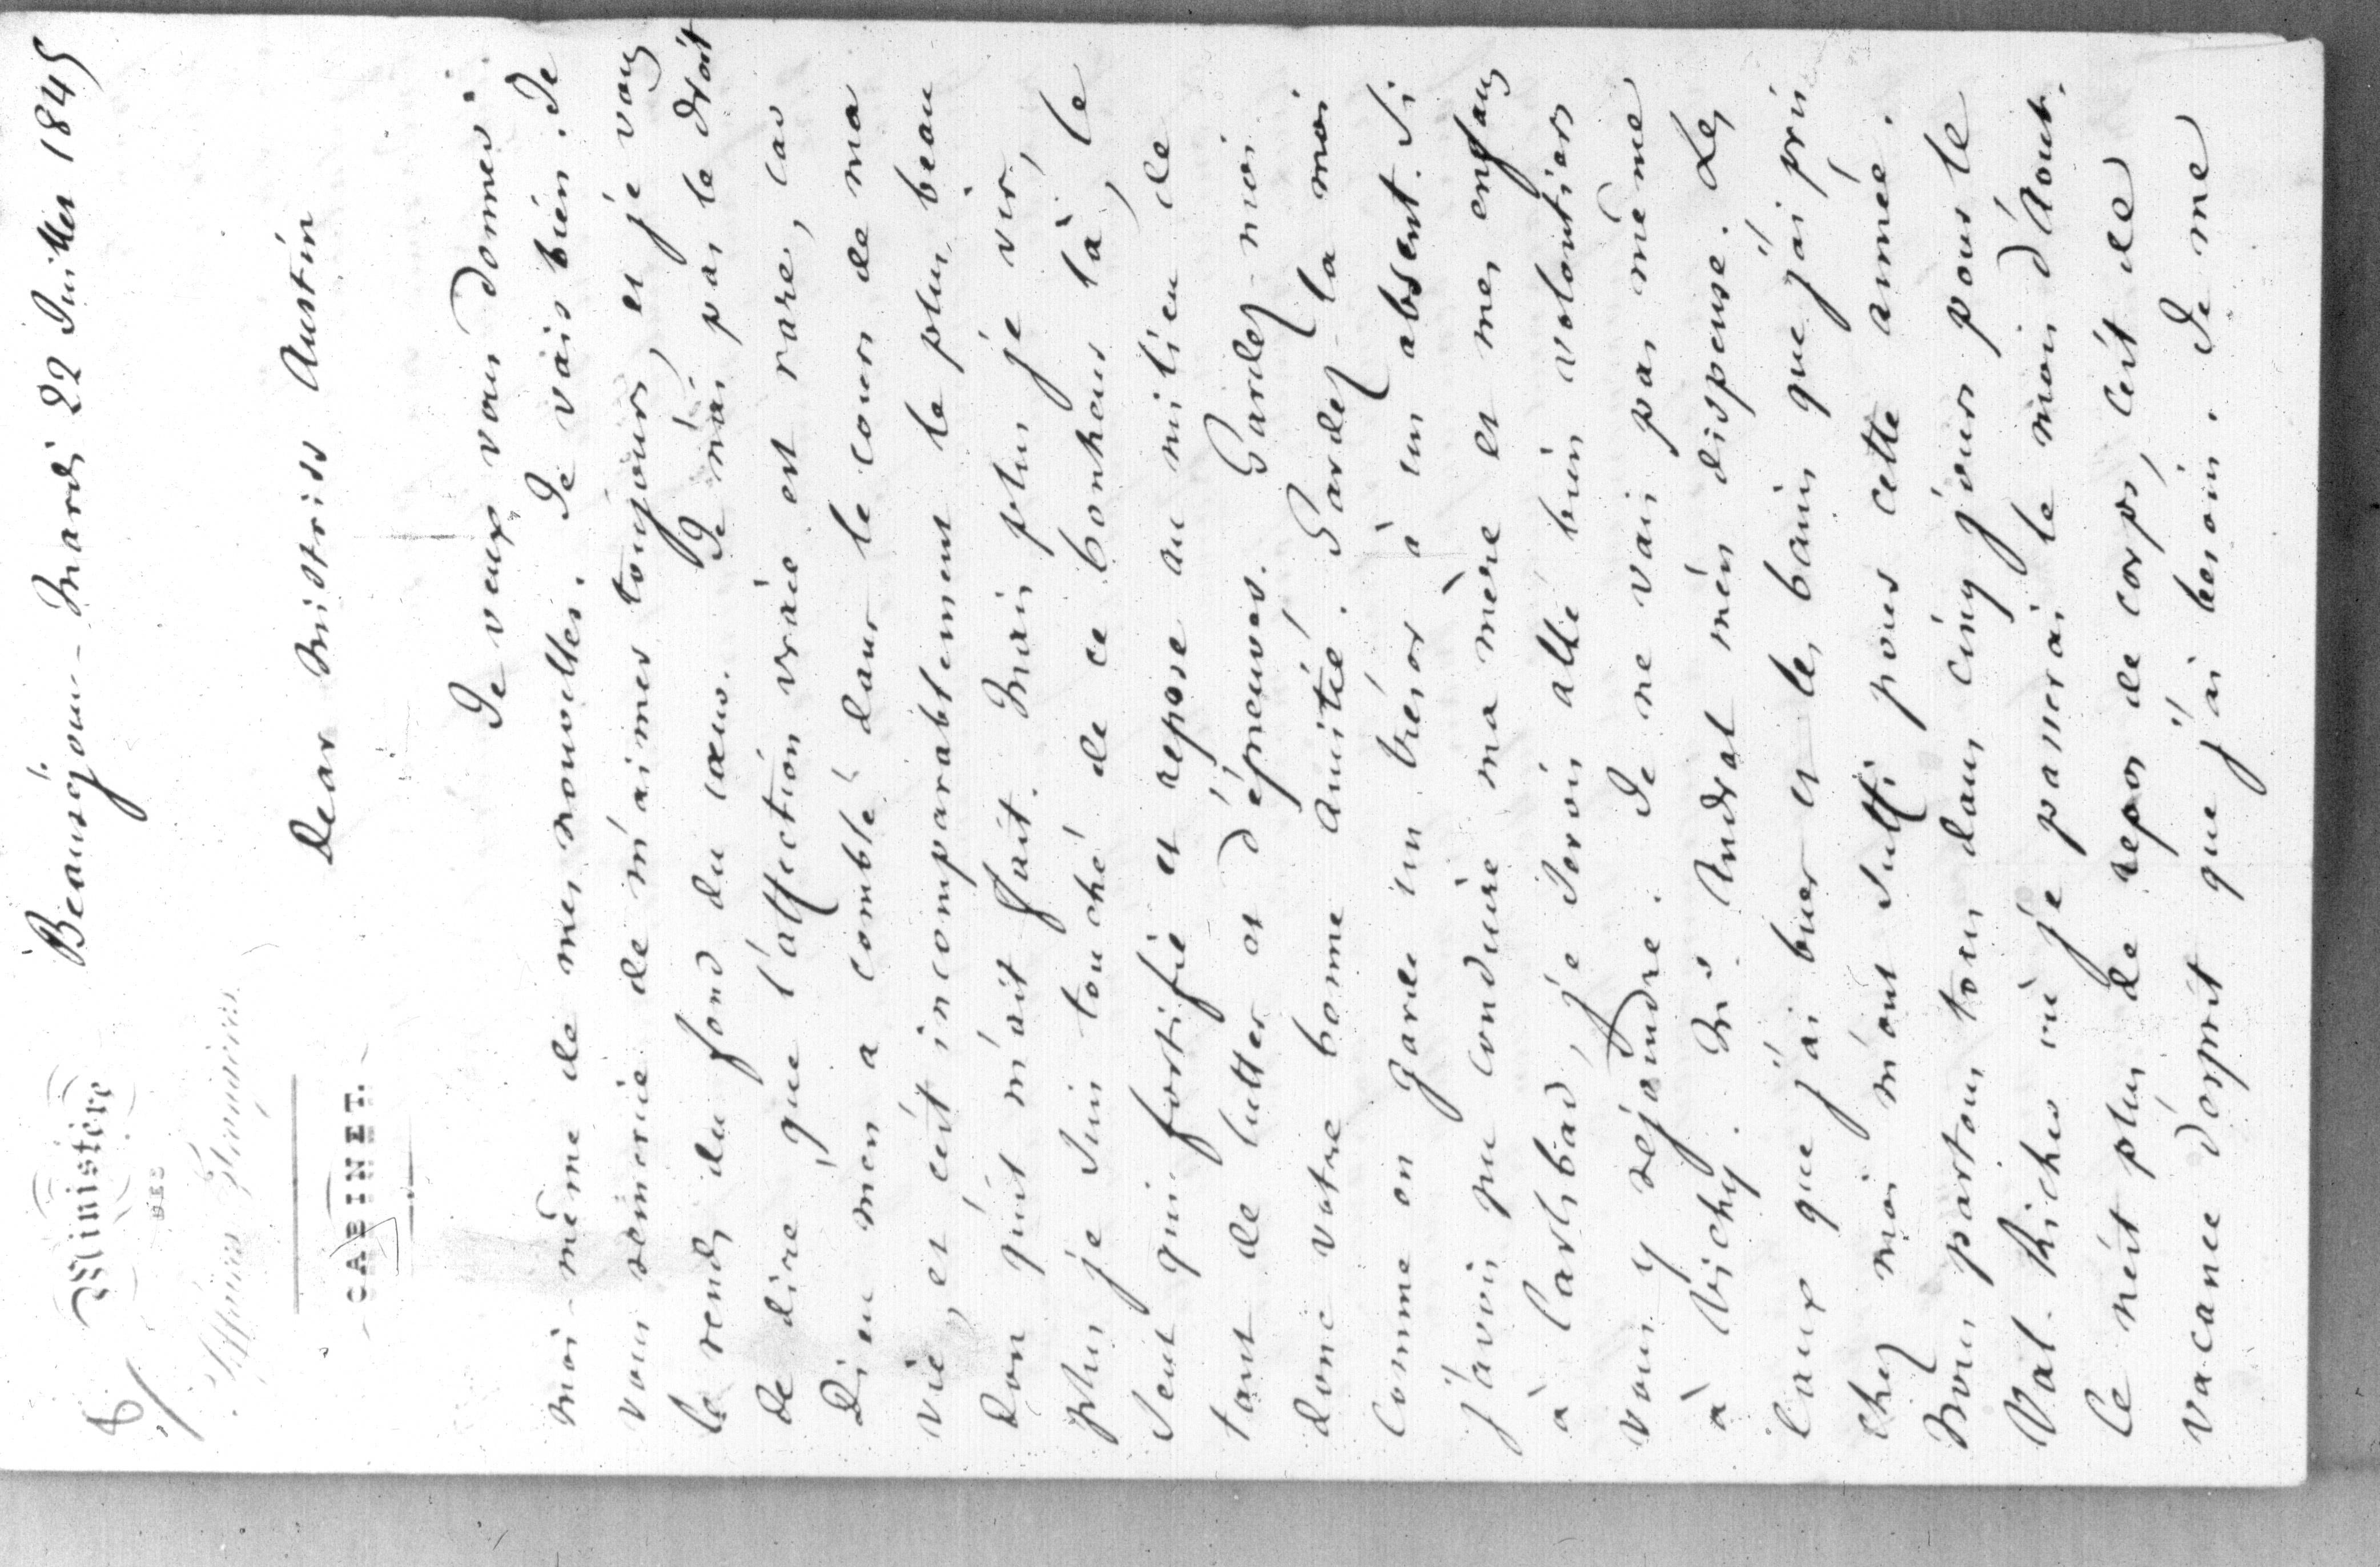 8/
Ministère
DES
Affaires Etrangères
CABINET.
Beauséjour - Mardi 22 Juillet 1845
Dear Mistriss Austin
Je veux vous donner
moi-même de mes nouvelles. Je vais bien. Je
vous remercie de m'aimer toujours, et je vous
le rends du fond du cœur. Je n'ai pas le droit
de dire que l'affection vraie est rare, car
Dieu m'en a comblé dans le cours de ma
vie, et c'est incomparablement le plus beau
don qu'il m'ait fait. Mais plus je vis,
plus je suis touché de ce bonheur là, le
seul qui fortifie et repose au milieu de
tant de luttes et d'épreuves. Gardez-moi
donc votre bonne amitié. Gardez-la moi
comme on garde un trésor à un absent. Si
j'avois pu conduire ma mère et mes enfans
à Carlsbad, je serois allé bien volontiers
vous y rejoindre. Je ne vais pas même
à Vichy. Mr Andral m'en dispense. Les
eaux que j'ai bues et les bains que j'ai pris
chez moi m'ont suffi pour cette année.
Nous partons tous dans cinq jours pour le
Val-Richer où je passerai le mois d'Aout.
Ce n'est plus de repos de corps, c'est de
vacance d'esprit que j'ai besoin. Je me